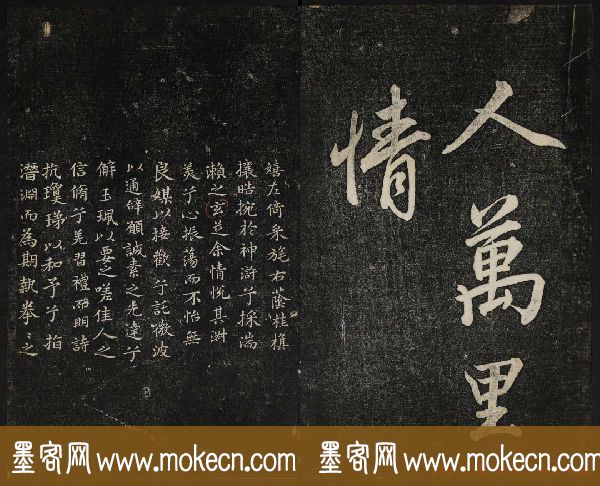 人萬里
情
嬉左倚采旄右蔭桂旗
攘皓捥於神滸兮採湍
瀨之玄芝余情悅其淑
美兮心振蕩而不怡無
良媒以接歡兮託微波
以通辭願誠素之先達兮
解玉珮以要之嗟佳人之
信脩兮羌習禮而明詩
抗瓊珶以和予兮指
潛淵而為期執拳〻之
墨客网 www.mokecn.com
墨客网 www.mokecn.com